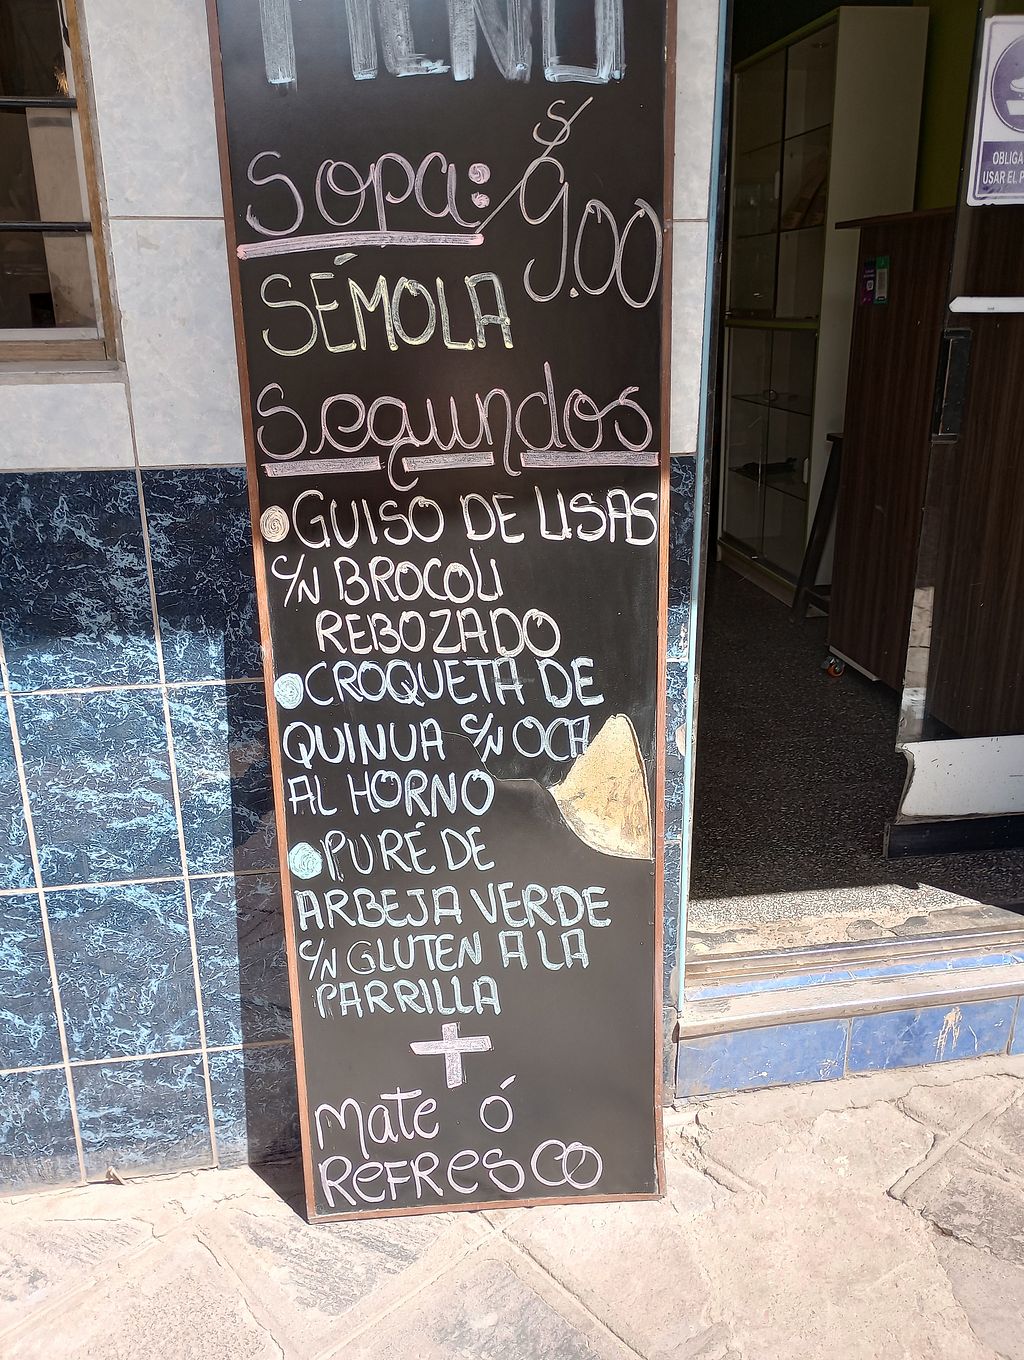 MENÚ
Sopa: S/ 9.00
SÉMOLA
Segundos
GUISO DE LISAS
C/N BROCOLI
REBOZADO
CROQUETA DE
QUINUA C/N OCA
AL HORNO
PURÉ DE
ARBEJA VERDE
C/N GLUTEN A LA
PARRILLA
+
Mate ó
REFRESCO
OBLIGA
USAR EL P